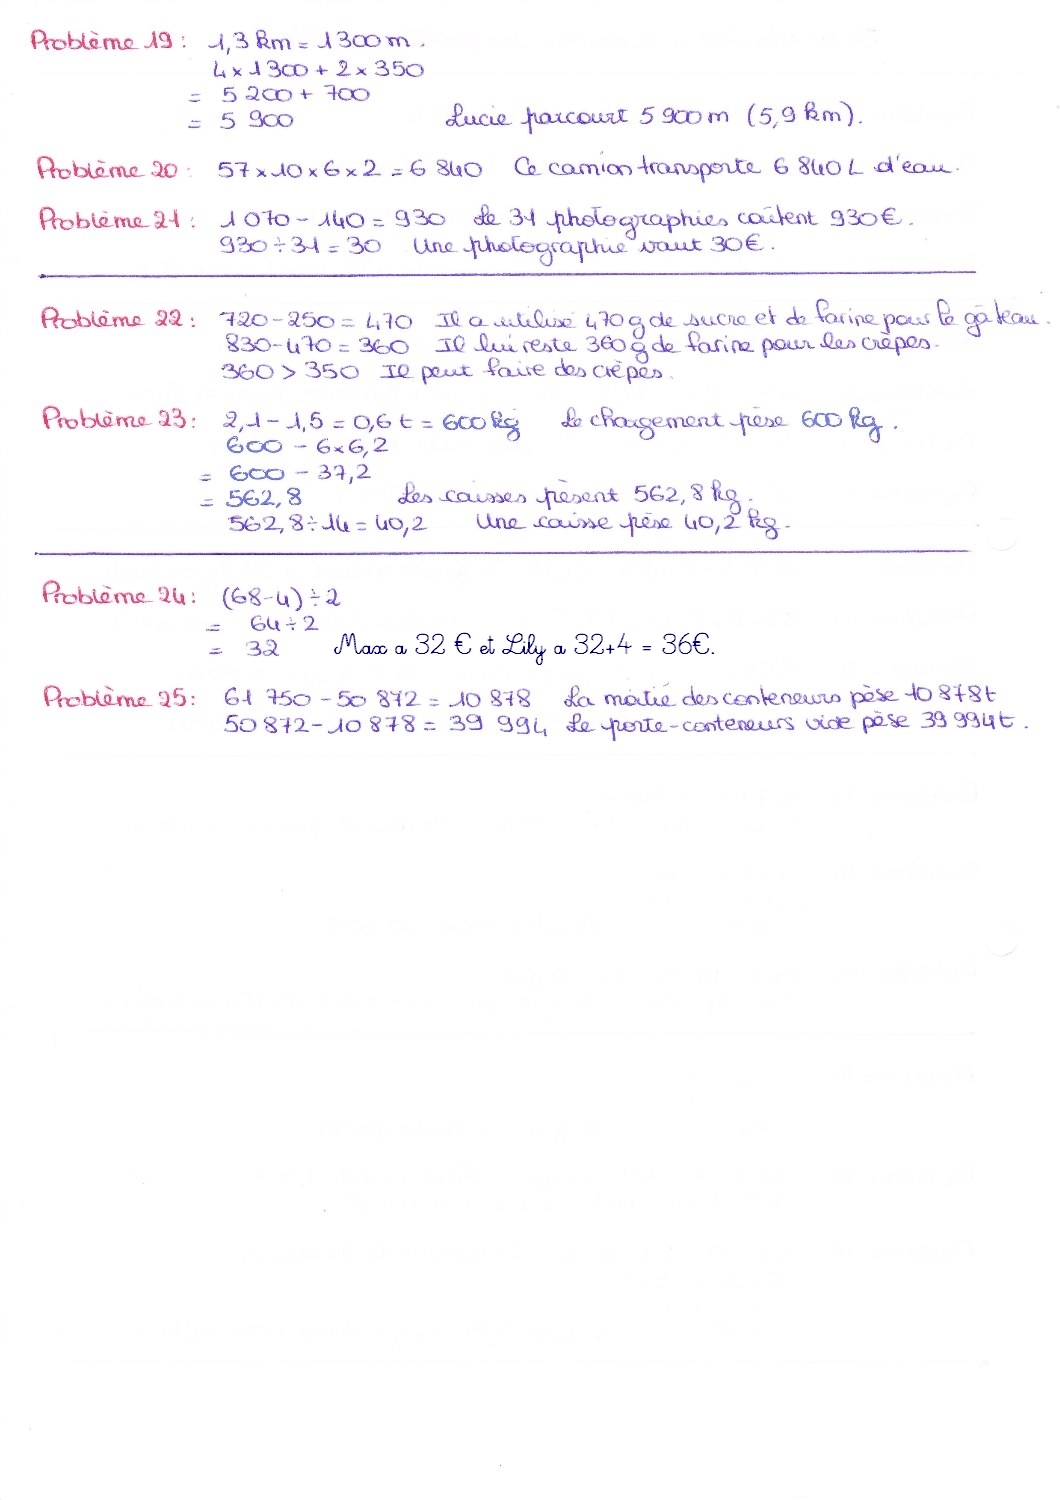 Problème 19 : 1,3 km = 1300 m.
4 × 1300 + 2 × 350
= 5 200 + 700
= 5 900 Lucie parcourt 5 900 m (5,9 km).
Problème 20 : 57 × 10 × 6 × 2 = 6 840 Ce camion transporte 6 840 L d'eau.
Problème 21 : 1 070 - 140 = 930 Le 31 photographies coûtent 930 €.
930 ÷ 31 = 30 Une photographie vaut 30 €.
Problème 22 : 720 - 250 = 470 Il a utilisé 470 g de sucre et de farine pour le gâteau.
830 - 470 = 360 Il lui reste 360 g de farine pour les crêpes.
360 > 350 Il peut faire des crêpes.
Problème 23 : 2,1 - 1,5 = 0,6 t = 600 kg Le chargement pèse 600 kg.
600 - 6 × 6,2
= 600 - 37,2
= 562,8 Les caisses pèsent 562,8 kg.
562,8 ÷ 14 = 40,2 Une caisse pèse 40,2 kg.
Problème 24 : (68 - 4) ÷ 2
= 64 ÷ 2
= 32 Max a 32 € et Lily a 32+4 = 36€.
Problème 25 : 61 750 - 50 872 = 10 878 La moitié des conteneurs pèse 10 878 t
50 872 - 10 878 = 39 994 Le porte-conteneurs vide pèse 39 994 t.